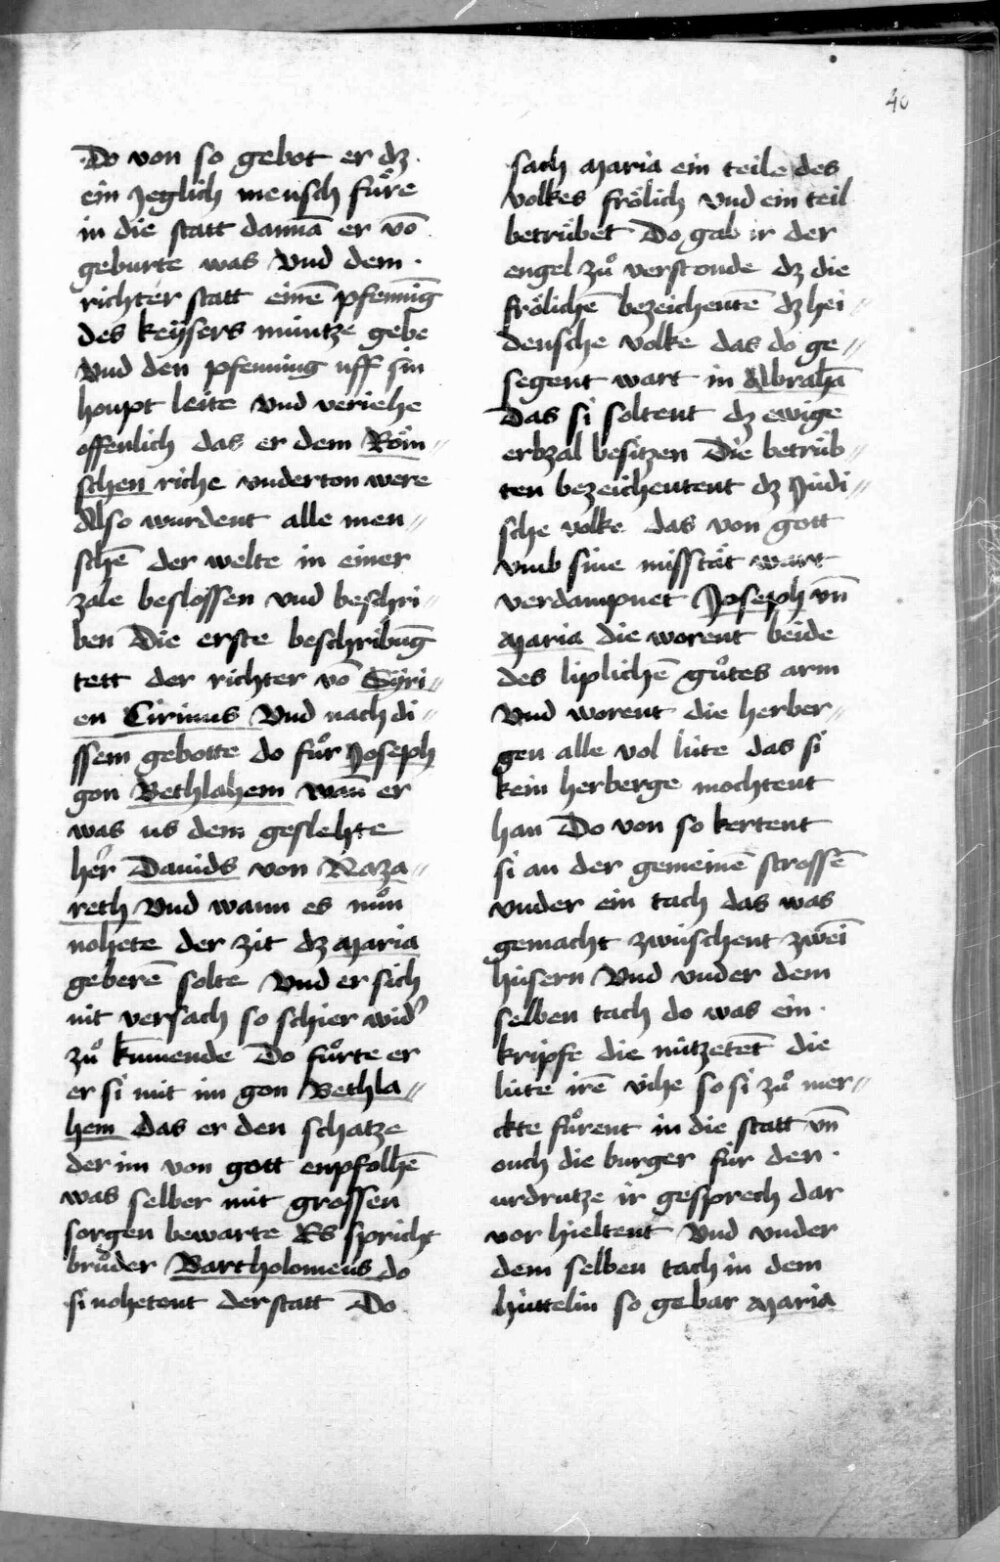 40
Do von so gebot er dz
ein Jeglich mensch fuͤre
in die statt dannā er vō
geburte was Vnd dem
richter statt einē pfennīg
des keÿsers muntze gebe
Vnd den pfenning uff sin
houpt leite Vnd veriehe
offenlich das er dem Röm〃
schen riche vnderton were
Also wurdent alle men〃
schē der welte in einer
zale beslossen vnd beschri〃
ben Die erste beschribūg
tett der richter vō Sÿri〃
en Cirinus Vnd nach di〃
ssem gebotte do fuͦr Joseph
gon Bethlahem wañ er
was us dem geslehte
her̕ Dauids von Naza〃
reth Vnd wann es nuͦn
nohete der zit dz Maria
geberē solte Vnd er sich
nit versach so schier wid̕
zuͦ kūmende Do fuͦrte er
er si mit im gon Bethla〃
hem das er den schatze
der im von gott enpfolhē
was selber mit grossen
sorgen bewarte Es spricht
bruͦder Bartholomeus do
si nohetent der statt Do
sach Maria ein teile des
volkes frölich vnd ein teil
betruͤbet Do gab ir der
engel zuͦ verstonde dz die
frölichē bezeichentē dz hei〃
densche volke das do ge〃
segent wart in Abrahā
Das si soltent dz ewige
erbzal besitzen Die betrüb〃
ten bezeichentent dz Judi〃
sche volke das von gott
vmb sine misstät wart
verdampnet Joseph vn̄
Maria die worent beide
des liplichē guͦtes arm
Vnd worent die herber〃
gen alle vol lüte das si
kein herberge mochtent
han Do von so kertent
si an der gemeinē strossē
vnder ein tach das was
gemacht zwüschent zwēi
hüsern Vnd vnder dem
selben tach do was ein
kripfe die nützetēt die
lüte irē vihe so si zuͦ mer〃
ckte fuͦrent in die statt vn̄
ouch die burger für den
urdrutze ir gesprech dar
vor hieltent Vnd vnder
dem selben tach in dem
hüttelin so gebar Maria